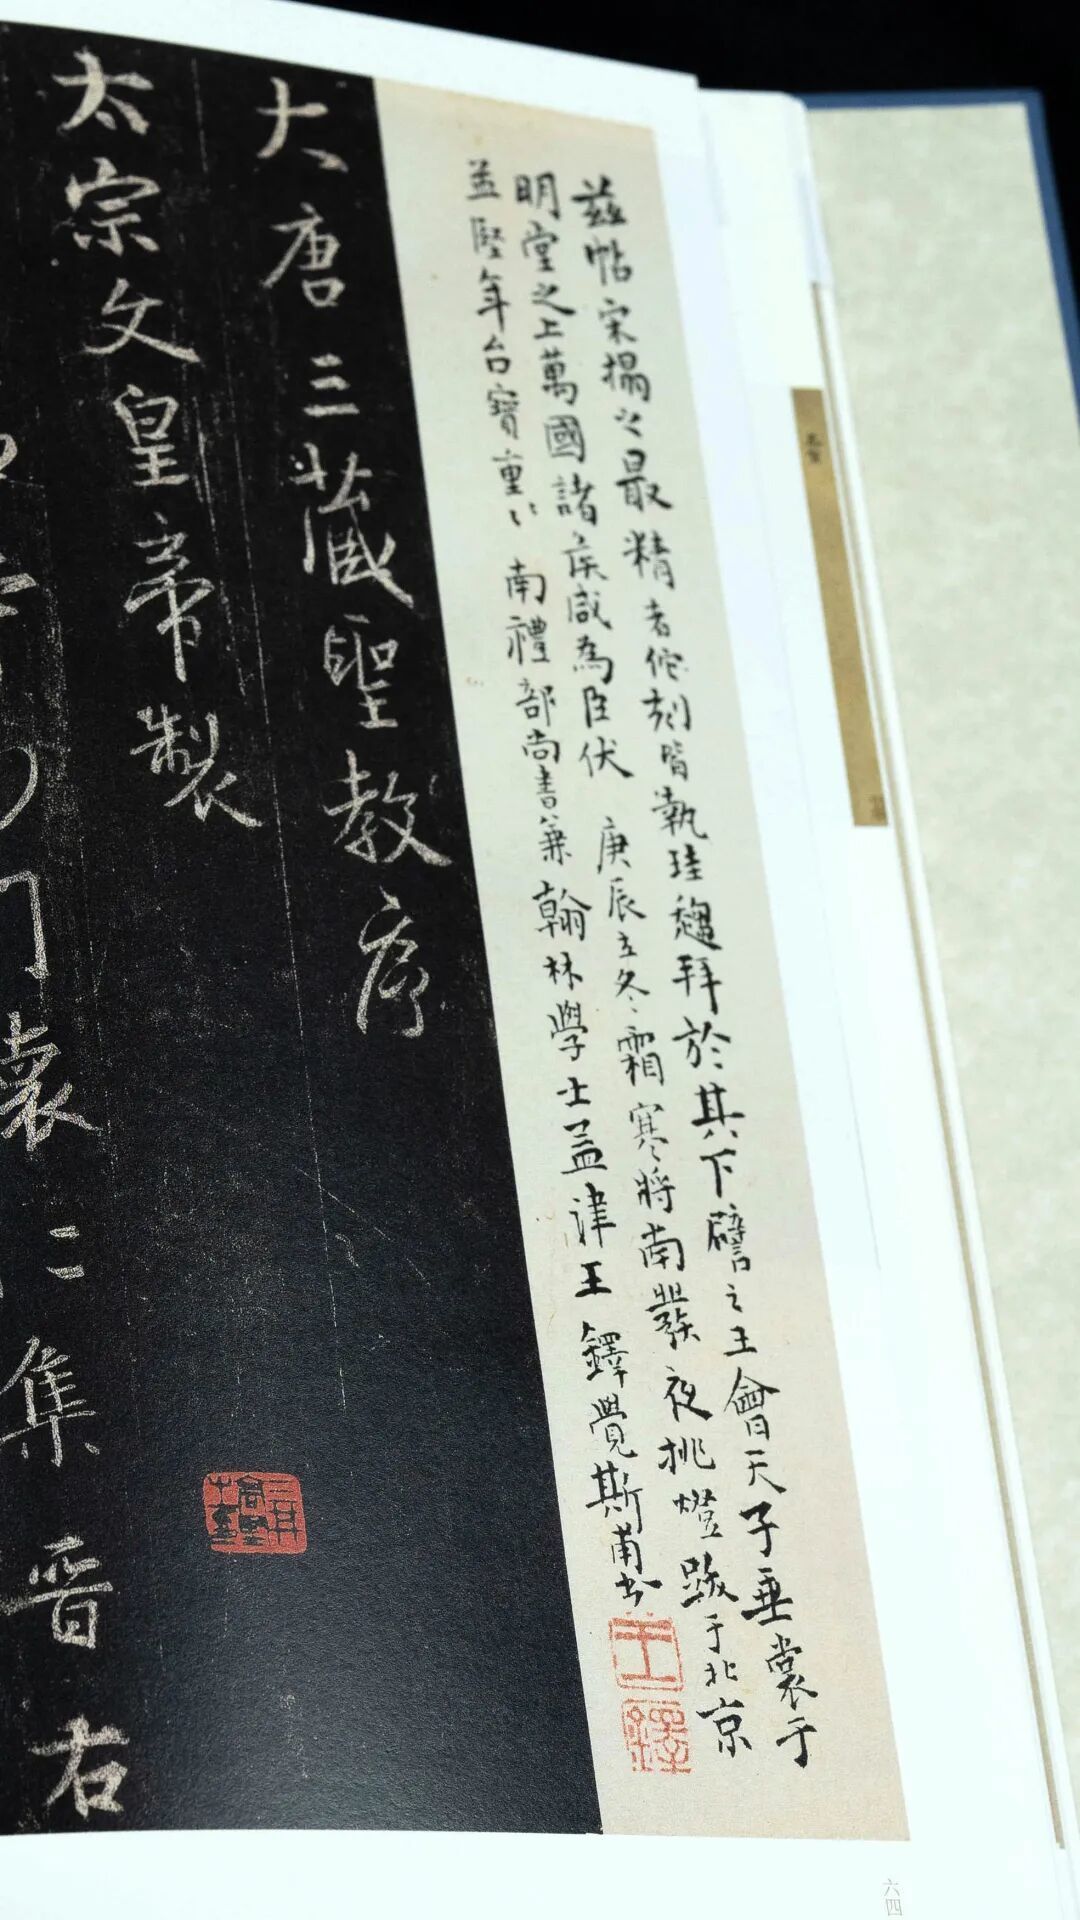 茲帖宋搨之最精者佗刻皆執珪趨拜於其下譬之王會天子垂裳于
明堂之上萬國諸侯咸為臣伏 庚辰立冬霜寒將南發夜挑燈跋于北京
孟堅年台寶重〻 南禮部尚書兼翰林學士孟津王鐸覺斯甫書
王鐸
大唐三藏聖教序
太宗文皇帝製
懷仁集晉右
六四